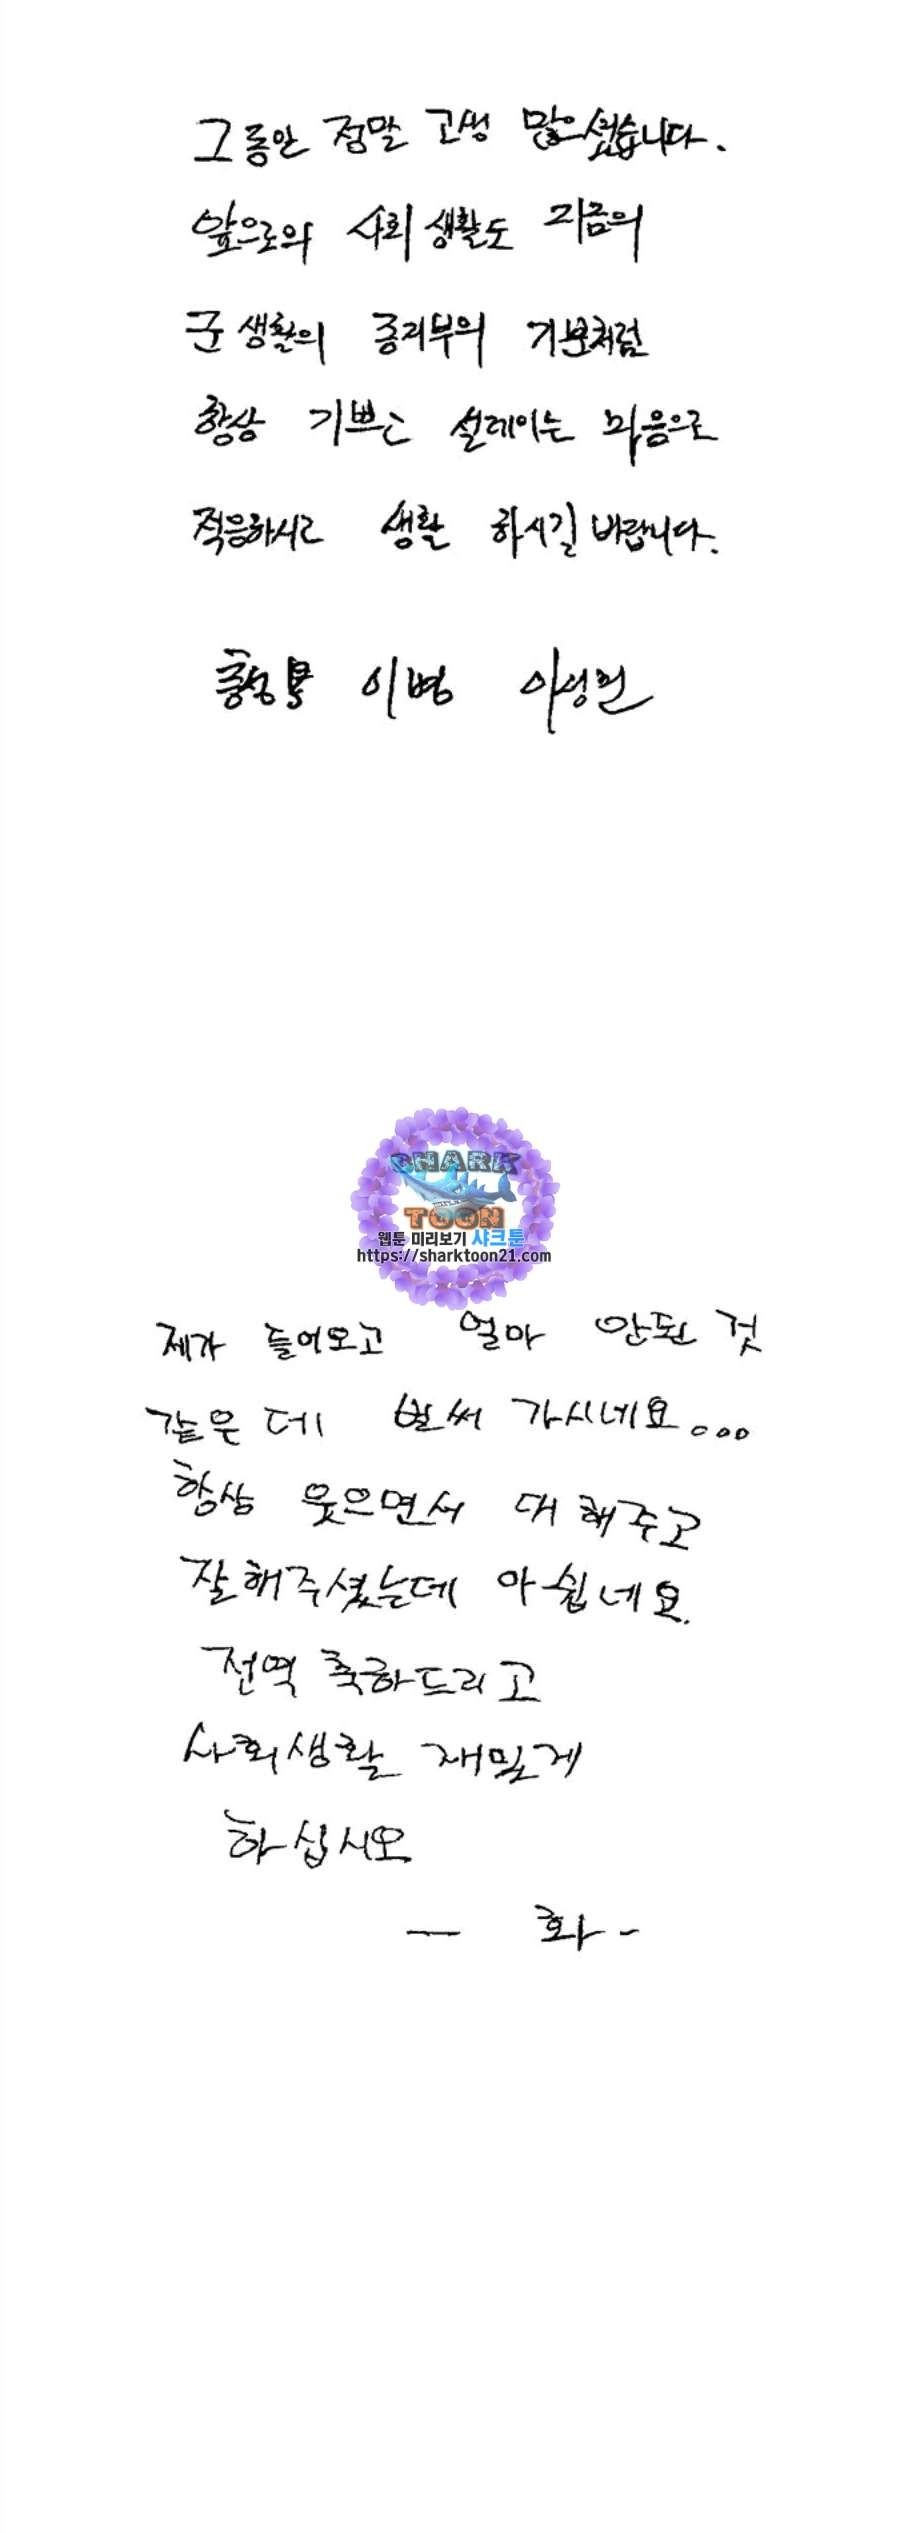 그동안 정말 고생 많으셨습니다.
앞으로의 사회 생활도 지금의
군생활의 종지부의 기분처럼
항상 기쁘고 설레이는 마음으로
적응하시고 생활 하시길 바랍니다.
이병
SHARK
TOON
웹툰 미리보기 샤크툰
https://sharktoon21.com
제가 들어오고 얼마 안된 것
같은데 벌써 가시네요...
항상 웃으면서 대해주고
잘해주셨는데 아쉽네요.
전역 축하드리고
사회생활 재밌게
하십시오
- 화 -